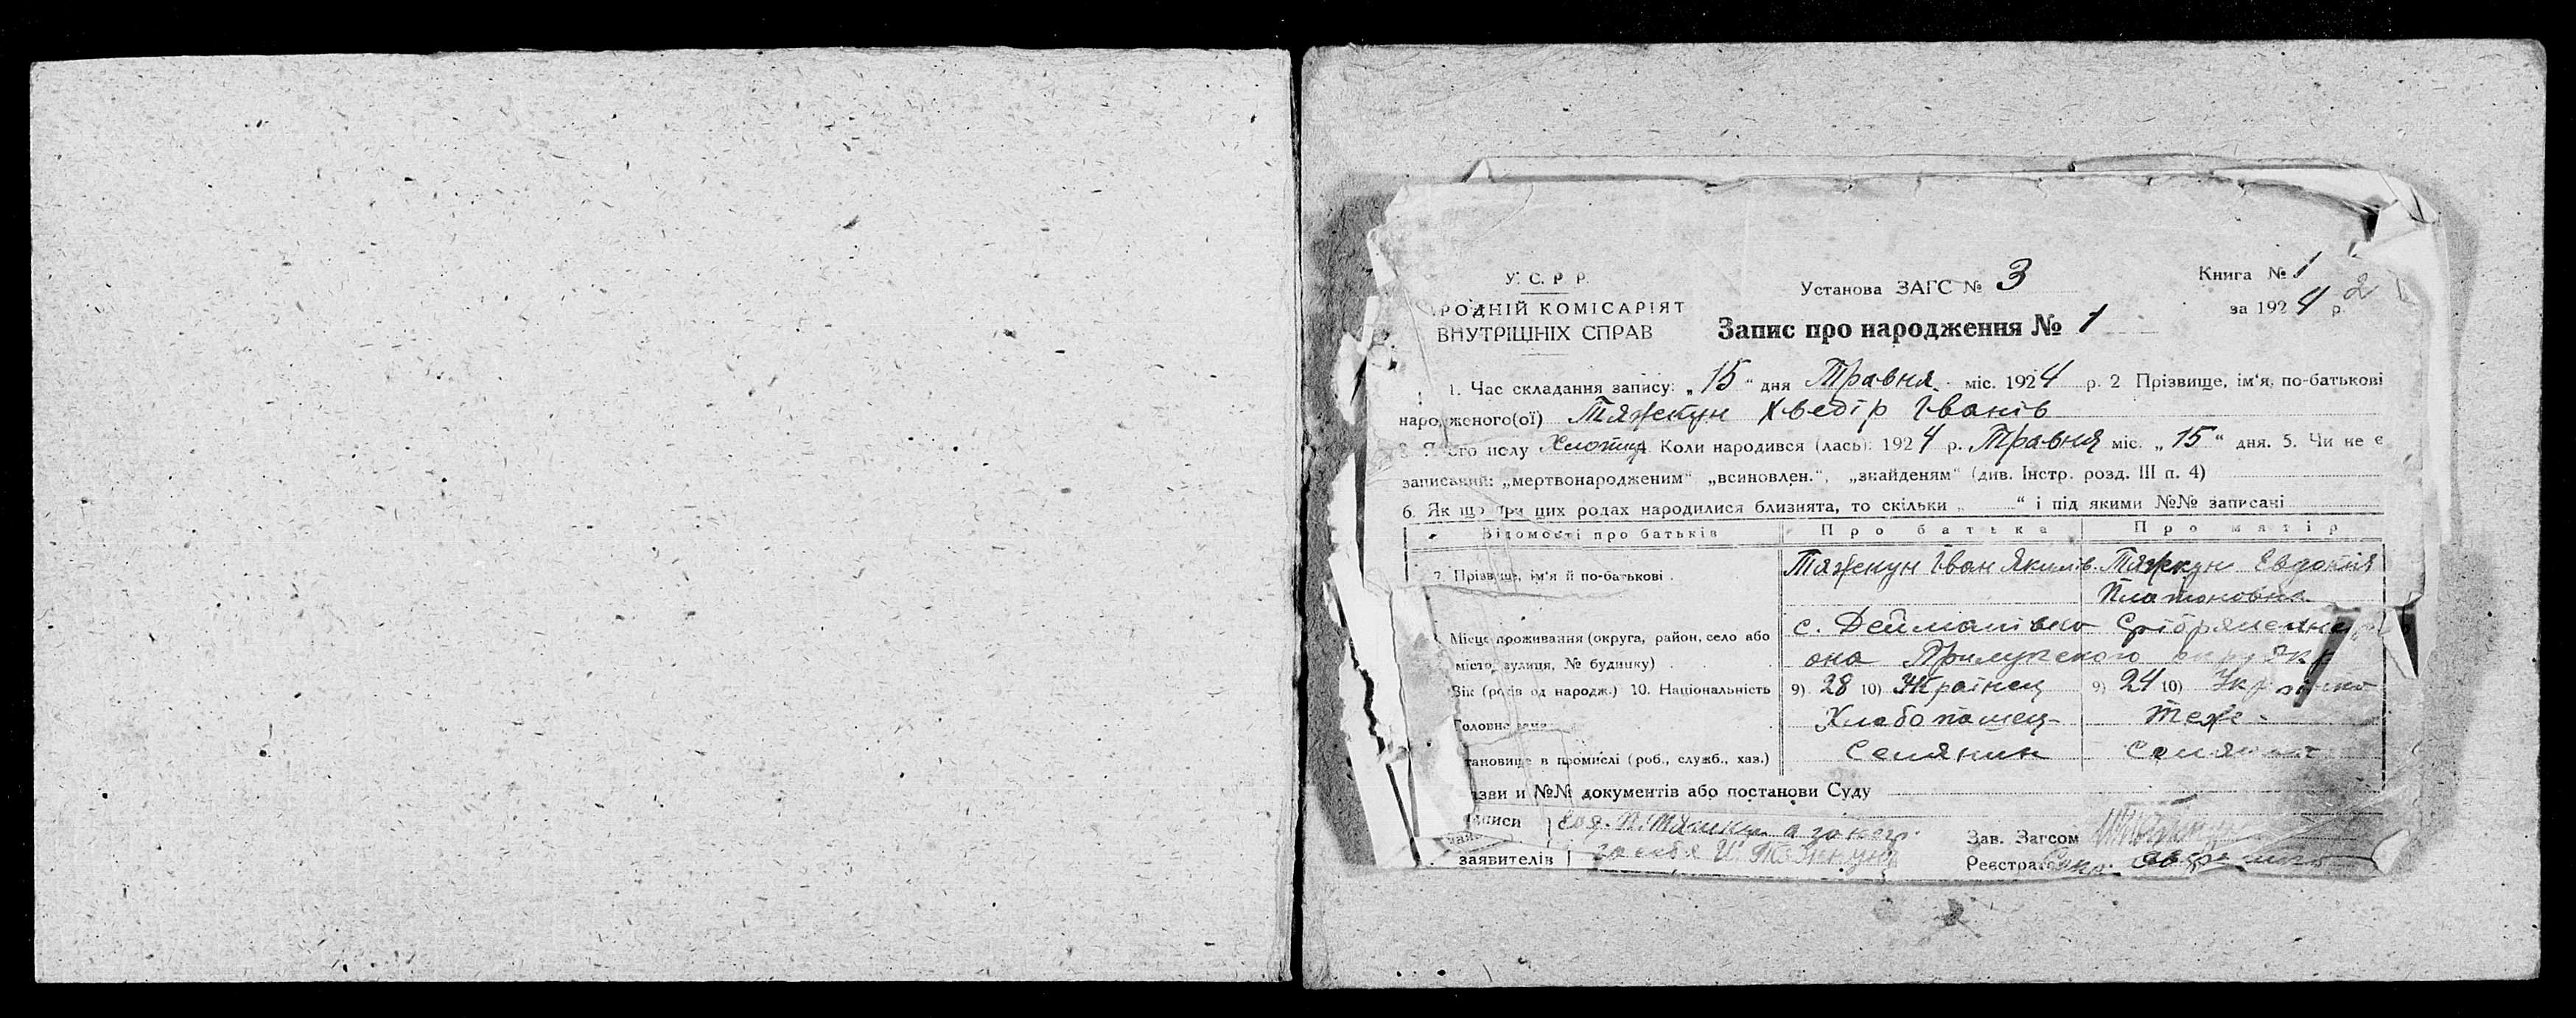 У. С. Р Р.
Установа ЗАГС № 3
Книга № 1
РОДНІЙ КОМІСАРІЯТ
за 1924 р
2
ВНУТРІШНІХ СПРАВ
Запис про народження № 1
1. Час складання запису: „15“ дня Травня міс. 1924 р. 2 Прізвище, ім'я, по-батькові
народженого(ої) Тяжкун Хведір Іванів
полу Хлопець 4 Коли народився (лась): 1924 р. Травня міс. „15“ дня. 5. Чи не є
записаний: „мертвонародженим“ „всиновлен.“, „знайденям“ (див. Інстр. розд. III п. 4)
6. Як що при цих родах народилися близнята, то скільки „ “ і під якими №№ записані
Відомості про батьків Про батька Про матір
7. Прізвище, ім'я й по-батькові Тяжкун Іван Якимів Тяжкун Евдокія
Платоновна
Місце проживання (округа, район, село або с. Дейманівка
місто, вулиця, № будинку) она Прилуцького
Вік (років од народж.) 10. Національність 9) 28 10) Українец 9) 24 10)
Головне Хлабопашец теж
тановище в промислі (роб., служб., хаз.) Селянин
азви и №№ документів або постанови Суду
писи
Зав. Загсом
заявителів за себе И. Тяжкун
Реєстра